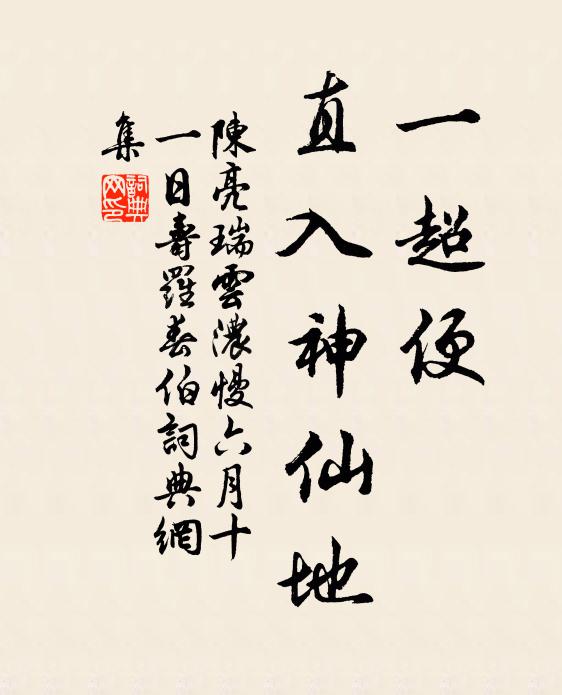 一超便
直入神仙地
陳亮瑞雲濃慢六月十
一日壽羅春伯詞典網
集
詞典
网印